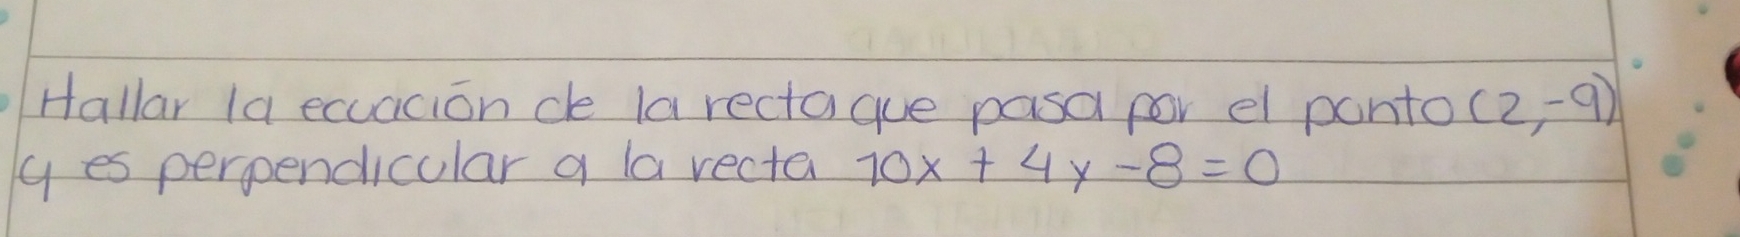 Hallar la ecuación de la recta que pasa por el punto (2,-9)
y es perpendicular a la recta 10x + 4y - 8 = 0